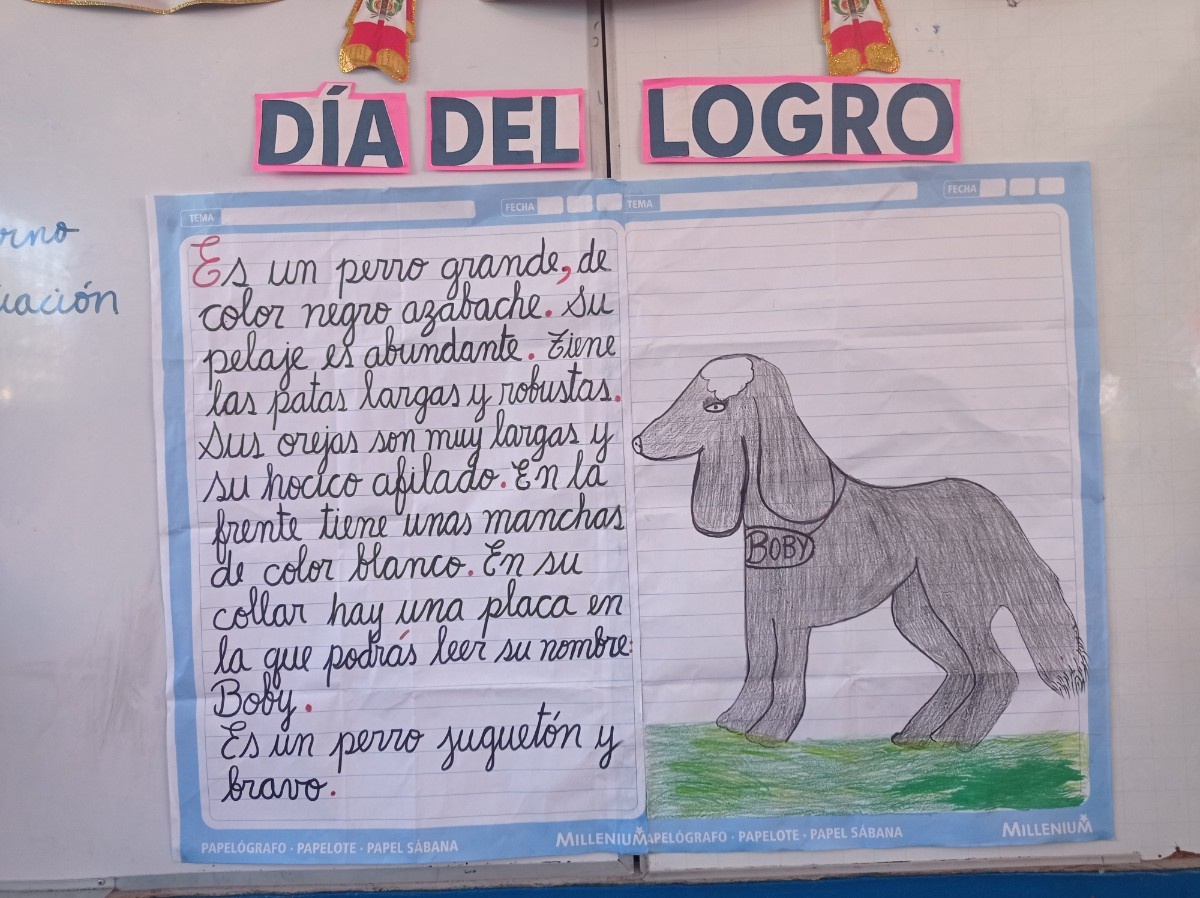 DÍA DEL LOGRO
TEMA FECHA TEMA FECHA
Es un perro grande, de
color negro azabache. Su
pelaje es abundante. Tiene
las patas largas y robustas.
Sus orejas son muy largas y
su hocico afilado. En la
frente tiene unas manchas
de color blanco. En su
collar hay una placa en
la que podrás leer su nombre:
Boby.
Es un perro juguetón y
bravo.
BOBY
PAPELÓGRAFO · PAPELOTE · PAPEL SÁBANA MILLENIUM
PAPELÓGRAFO · PAPELOTE · PAPEL SÁBANA MILLENIUM